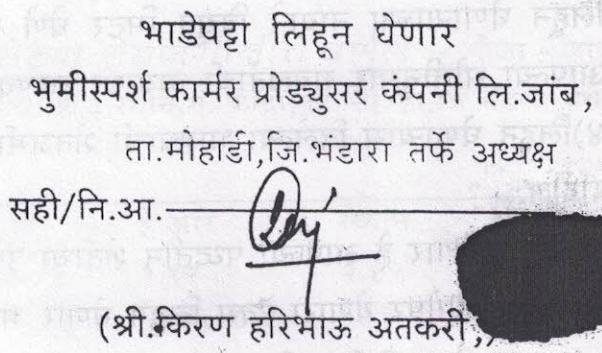 भाडेपट्टा लिहून घेणार
भुमीस्पर्श फार्मर प्रोड्युसर कंपनी लि.जांब,
ता.मोहाडी,जि.भंडारा तर्फे अध्यक्ष
सही/नि.आ.
(श्री.किरण हरिभाऊ अतकरी,)